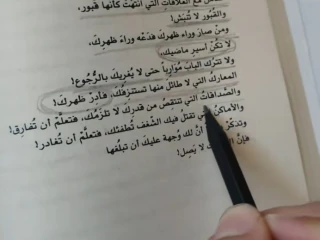 تتعامل مع العلاقات التي انتهت كأنها قبور،
والقُبور لا تُنبش!
ومن صارَ وراء ظهركَ فدَعْه وراءَ ظهركَ،
لا تكُنْ أسيرَ ماضيكَ،
ولا تتركِ البابَ مُوَارباً حتى لا يُغريكَ بالرُّجوع!
المعاركُ التي لا طائل منها تستنزفكَ، فأدِرْ ظهركَ!
والصَّداقاتُ التي تنتقِصُ من قدركَ لا تلزمُكَ، فتعلَّم أن تُفارِق!
والأماكنُ التي تقتلُ فيكَ الشَّغف تُطفئكَ، فتعلَّم أن تُغادر!
وتذكَّر أنَّ لكَ وُجهة عليكَ أن تبلُغها
فإنَّ لا يَصِل!